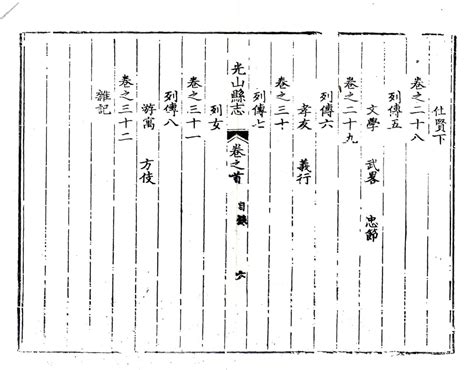 仕賢下
卷之二十八
列傳五
文學 武畧 忠節
卷之二十九
列傳六
孝友 義行
卷之三十
列傳七
光山縣志 卷之首 目錄 六
列女
卷之三十一
列傳八
游寓 方伎
卷之三十二
雜記